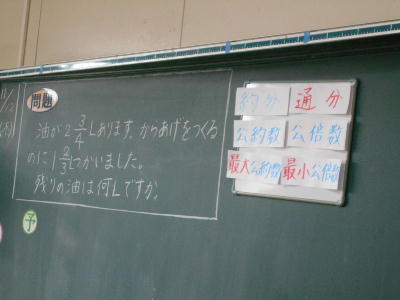 問題
油が2 3/4Lあります。からあげをつくる
のに1 2/3Lつかいました。
残りの油は何Lですか。
予
約分 通分
公約数 公倍数
最大公約数 最小公倍数